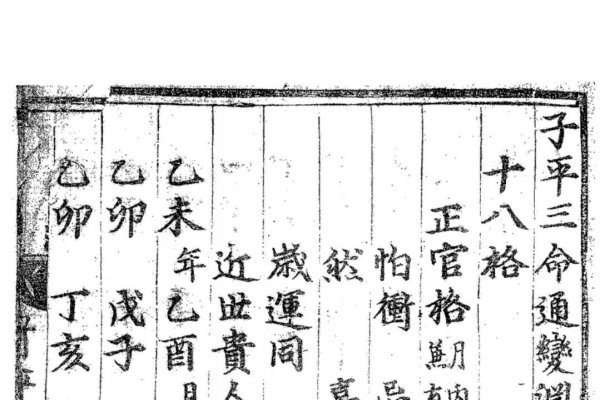 子平三命通變淵
十八格
正官格月內
怕衝忌
然
歲運同
近世貴人
乙未年乙酉日
乙卯　戊子
乙卯　丁亥